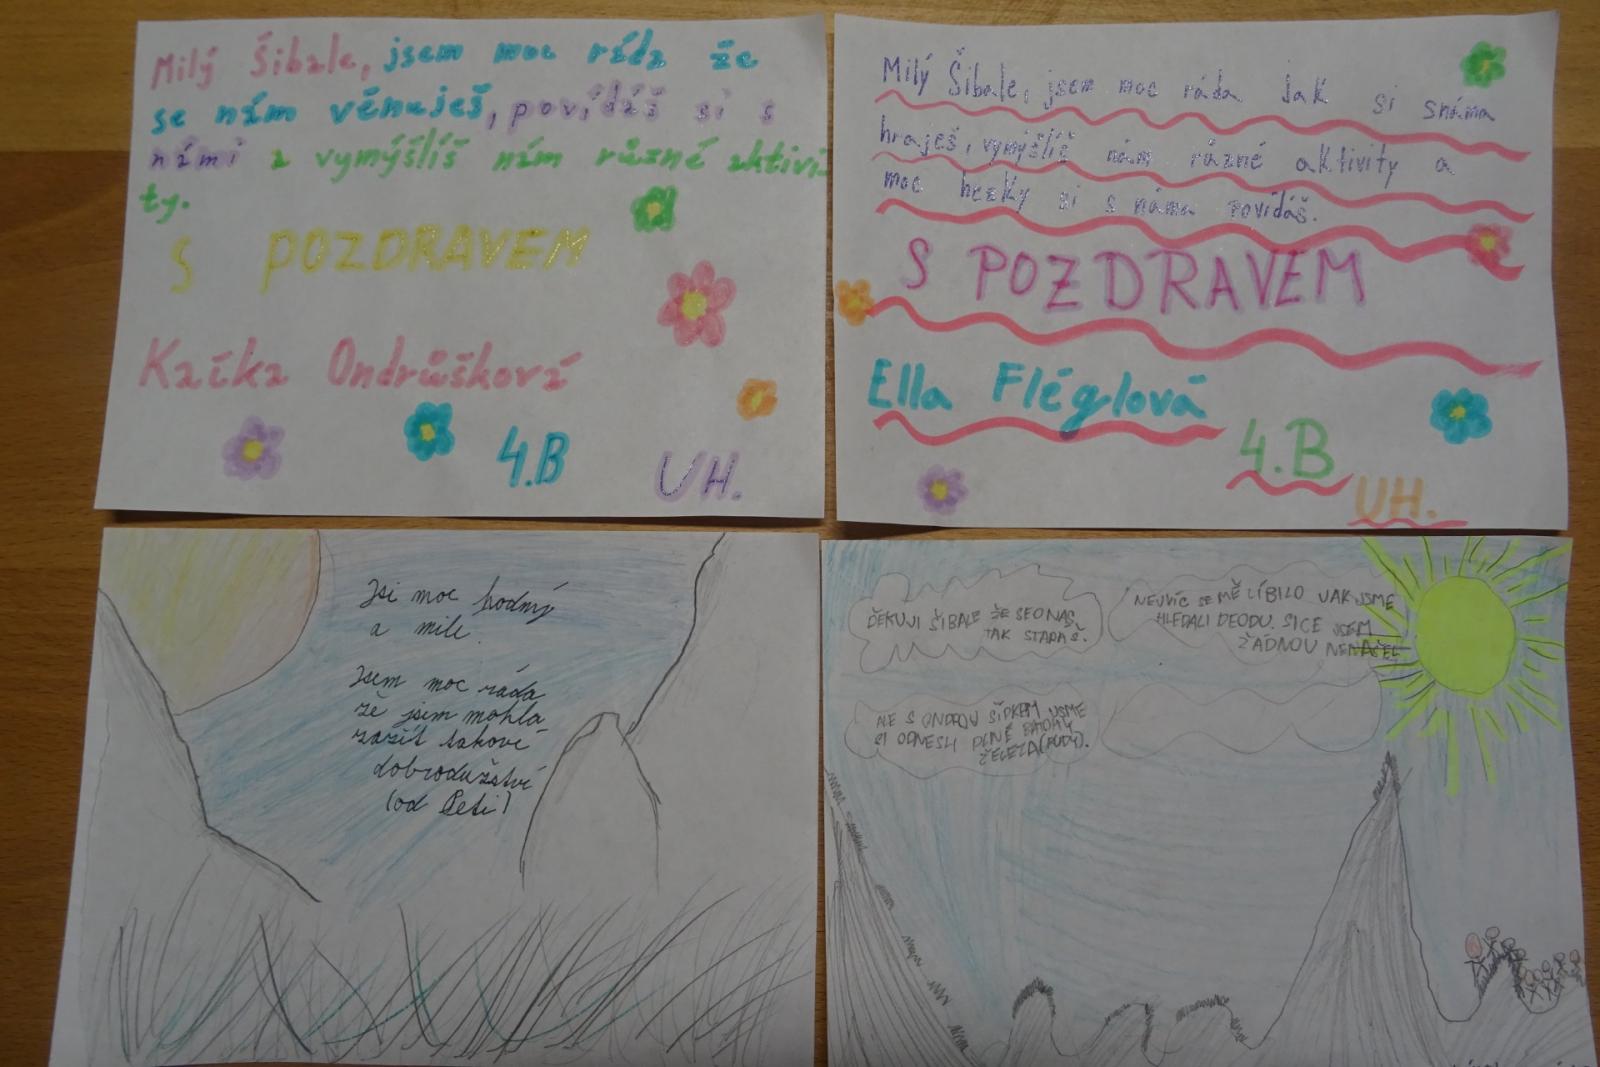 Milý Šibale, jsem moc ráda že
se nám věnuješ, povídáš si s
námi a vymýšlíš nám různé aktivi
ty.
S POZDRAVEM
Kačka Ondrůšková
4.B
UH.
Milý Šibale, jsem moc ráda jak si snáma
hraješ, vymýšlíš nám různé aktivity a
moc hezky si s náma povídáš.
S POZDRAVEM
Ella Fléglová
4.B
UH.
Jsi moc hodný
a milí.
Jsem moc ráda
že jsem mohla
zažít takové
dobrodužství
(od Peti)
DĚKUJI ŠIBALE ŽE SEONAS
TAK STARAŠ.
NEJVÍC SE MĚ LÍBILO JAK JSME
HLEDALI GEODU. SICE JSEM
ŽÁDNOU NENAŠEL
ALE S ONDROU ŠÍDREM JSME
SI ODNESLI PLNÉ BATOHY
ŽELEZA(RUDY).